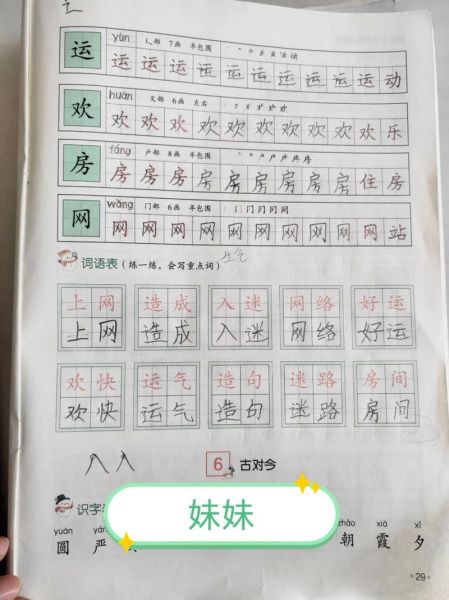 辶
运 yùn 辶部 7画 半包围
运 运 运 运 运 运 运 运 运 运 动
欢 huān 又部 6画 左右
欢 欢 欢 欢 欢 欢 欢 欢 欢 欢 乐
房 fáng 户部 8画 半包围
房 房 房 房 房 房 房 房 房 住 房
网 wǎng 冂部 6画 半包围
网 网 网 网 网 网 网 网 网 网 站
词语表(练一练,会写重点词)
生气
上网 造成 入迷 网络 好运
上网 造成 入迷 网络 好运
欢快 运气 造句 迷路 房间
欢快 运气 造句 迷路 房间
入入
6 古对今
识字
妹妹
yuán zhāo xiá xī
圆 严 朝 霞 夕
29